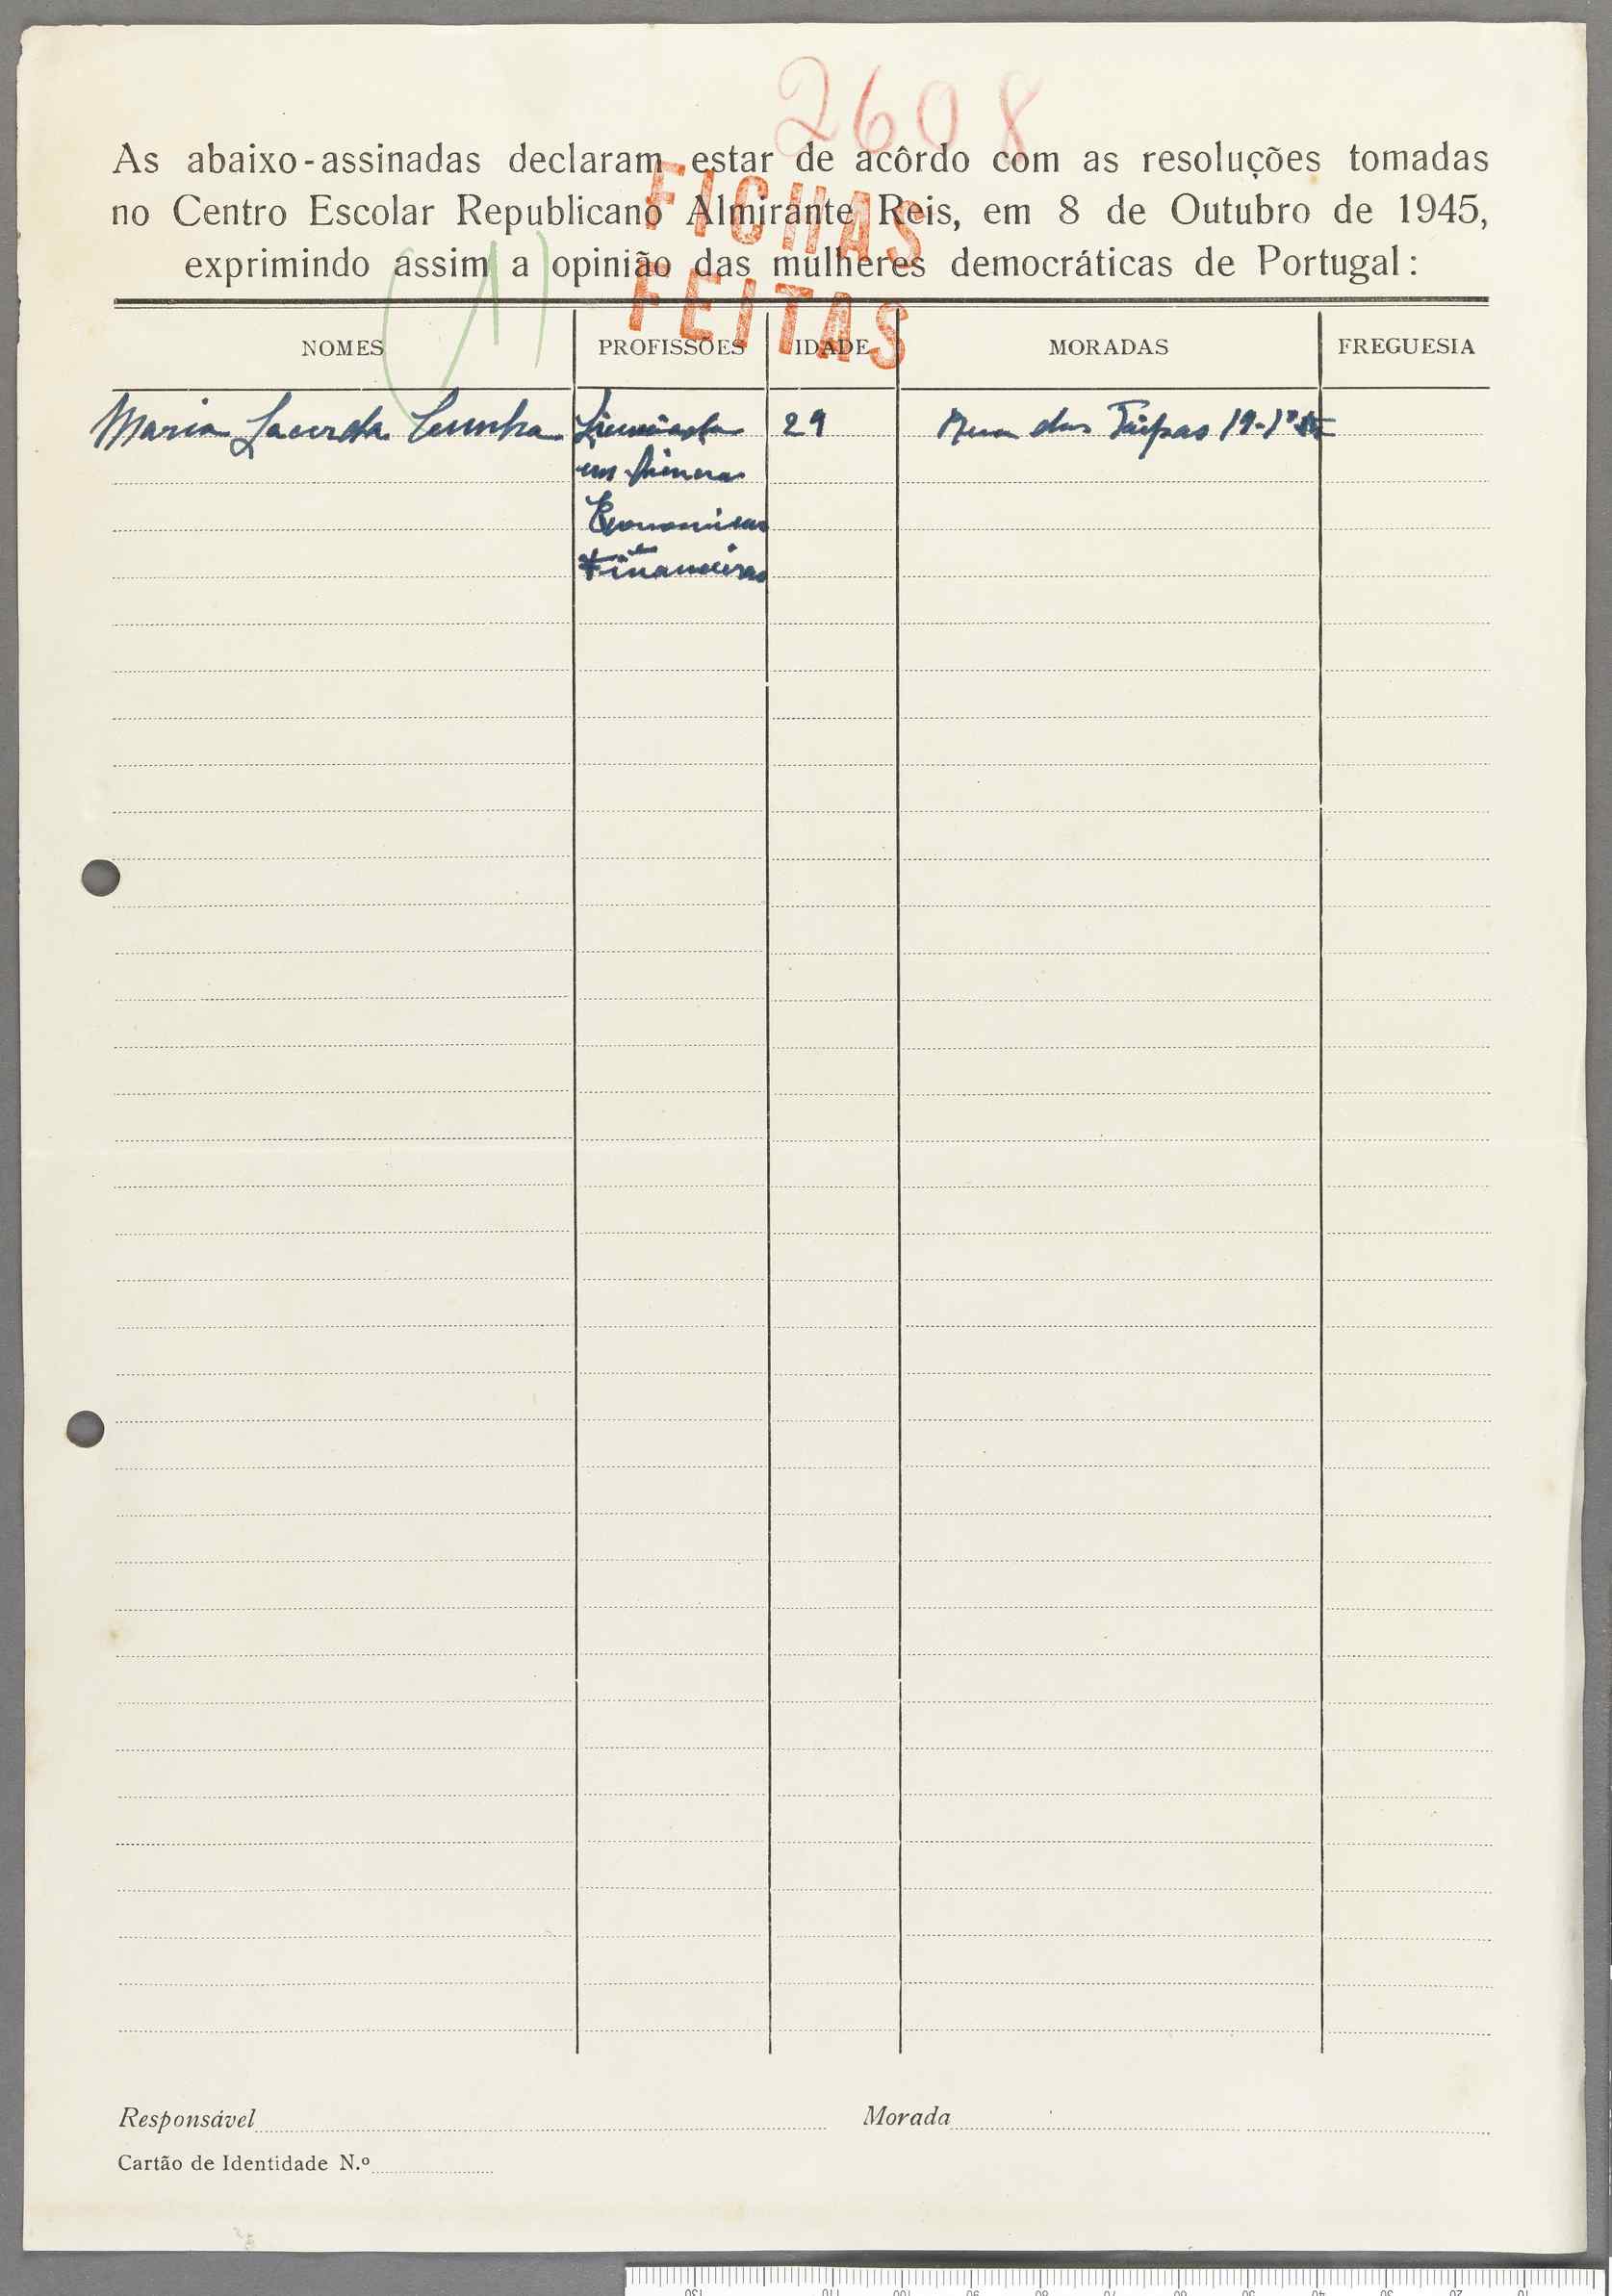 2608
As abaixo-assinadas declaram estar de acôrdo com as resoluções tomadas
no Centro Escolar Republicano Almirante Reis, em 8 de Outubro de 1945,
exprimindo assim a opinião das mulheres democráticas de Portugal:
FICHAS
FEITAS
(1)
NOMES PROFISSÕES IDADE MORADAS FREGUESIA
Maria Lacerda Cunha Licenciada 29 Rua das Taipas 19-1º
em Ciencias
Economicas
e Financeiras
Responsável Morada
Cartão de Identidade N.º